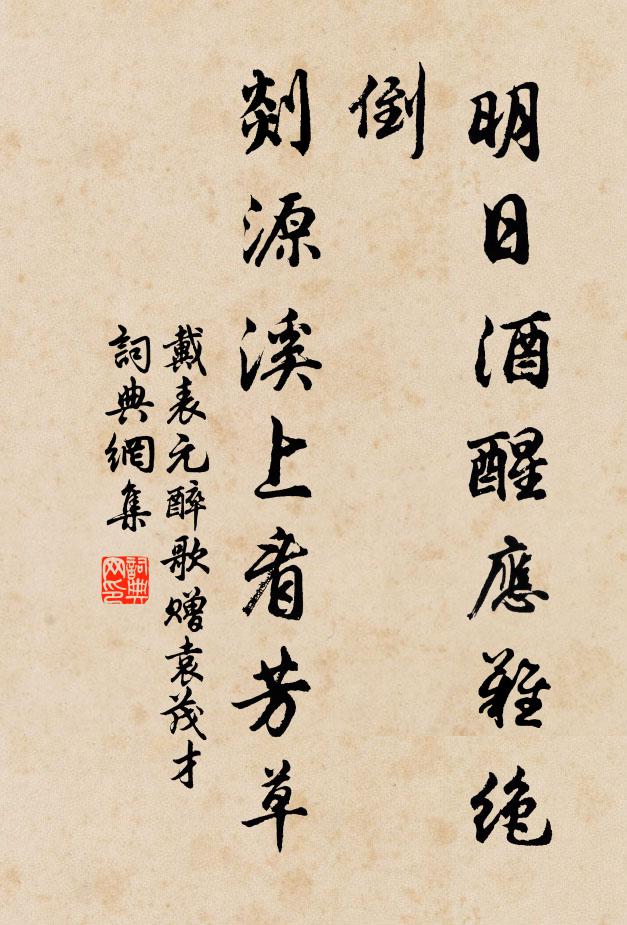 明日酒醒應難絶
倒
剡源溪上看芳草
戴表元醉歌贈袁茂才
詞典網集
詞典
网印